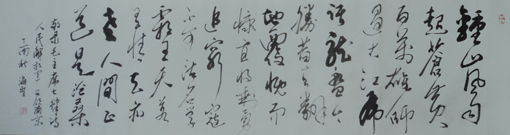 鍾山风雨
起蒼黄
百万雄师
过大江虎
踞龙盘今
胜昔天翻
地覆慨而
慷宜将剩勇
追穷寇
不可沽名学
霸王天若
有情天亦
老人间正
道是沧桑
毛主席七律诗
人民解放军占领南京